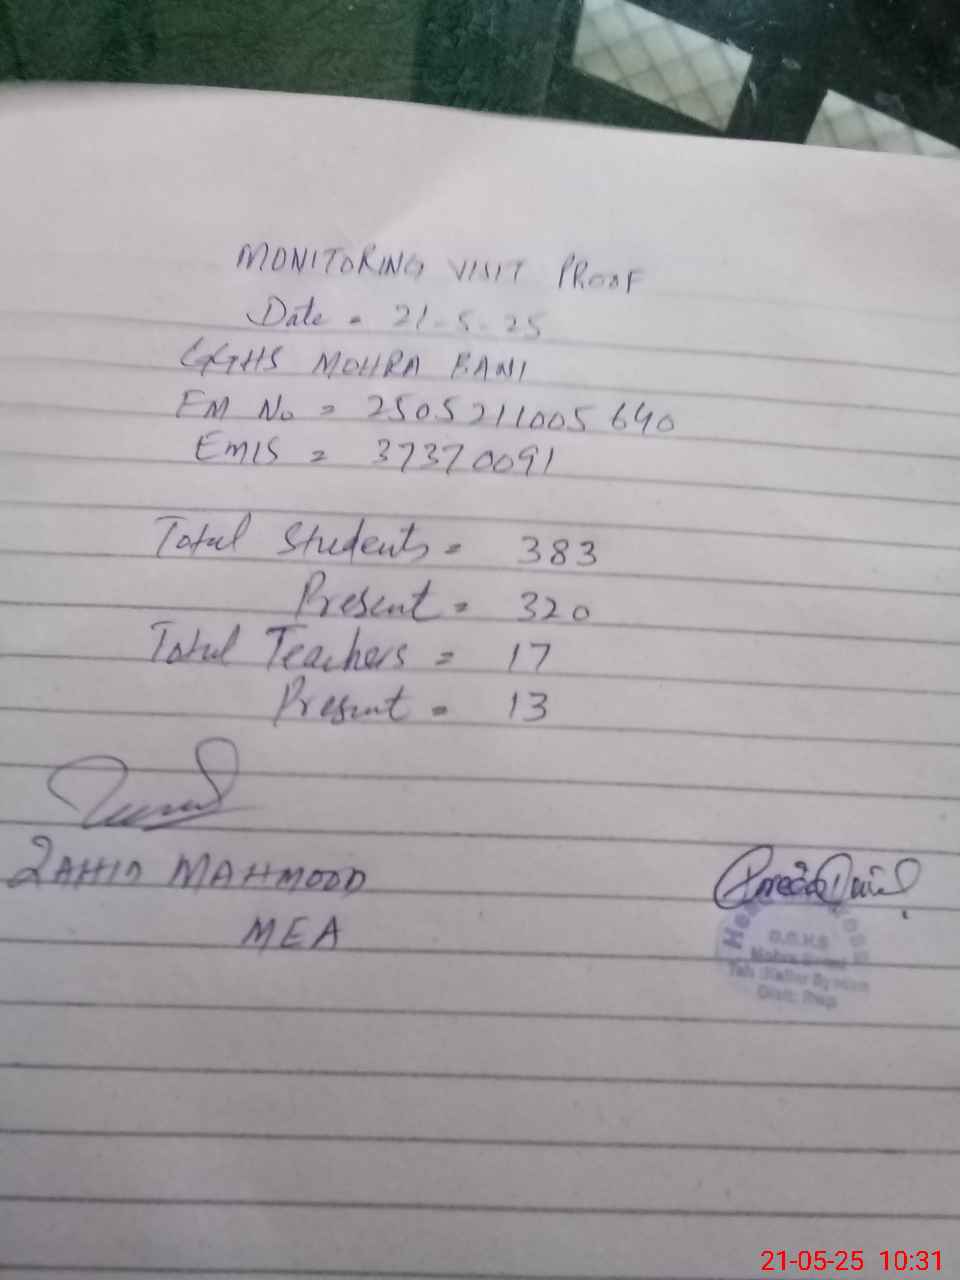 MONITORING VISIT PROOF
Date = 21-5-25
GGHS MOHRA BANI
EM No = 2505211005640
EMIS = 37370091
Total Students = 383
Present = 320
Total Teachers = 17
Present = 13
ZAHID MAHMOOD
MEA
G.G.H.S
Mohra
Teh :Kallar Syedan
Distt: Rwp
21-05-25 10:31